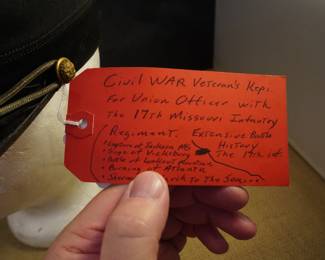 Civil WAR Veteran's Kepi
For Union Officer with
The 17th Missouri Infantry
Regiment. Extensive Battle
History
The 17th inf.
• Capture of Jackson MS
• Siege of Vicksburg
• Battle of
• Burning of Atlanta
• March To The Sea